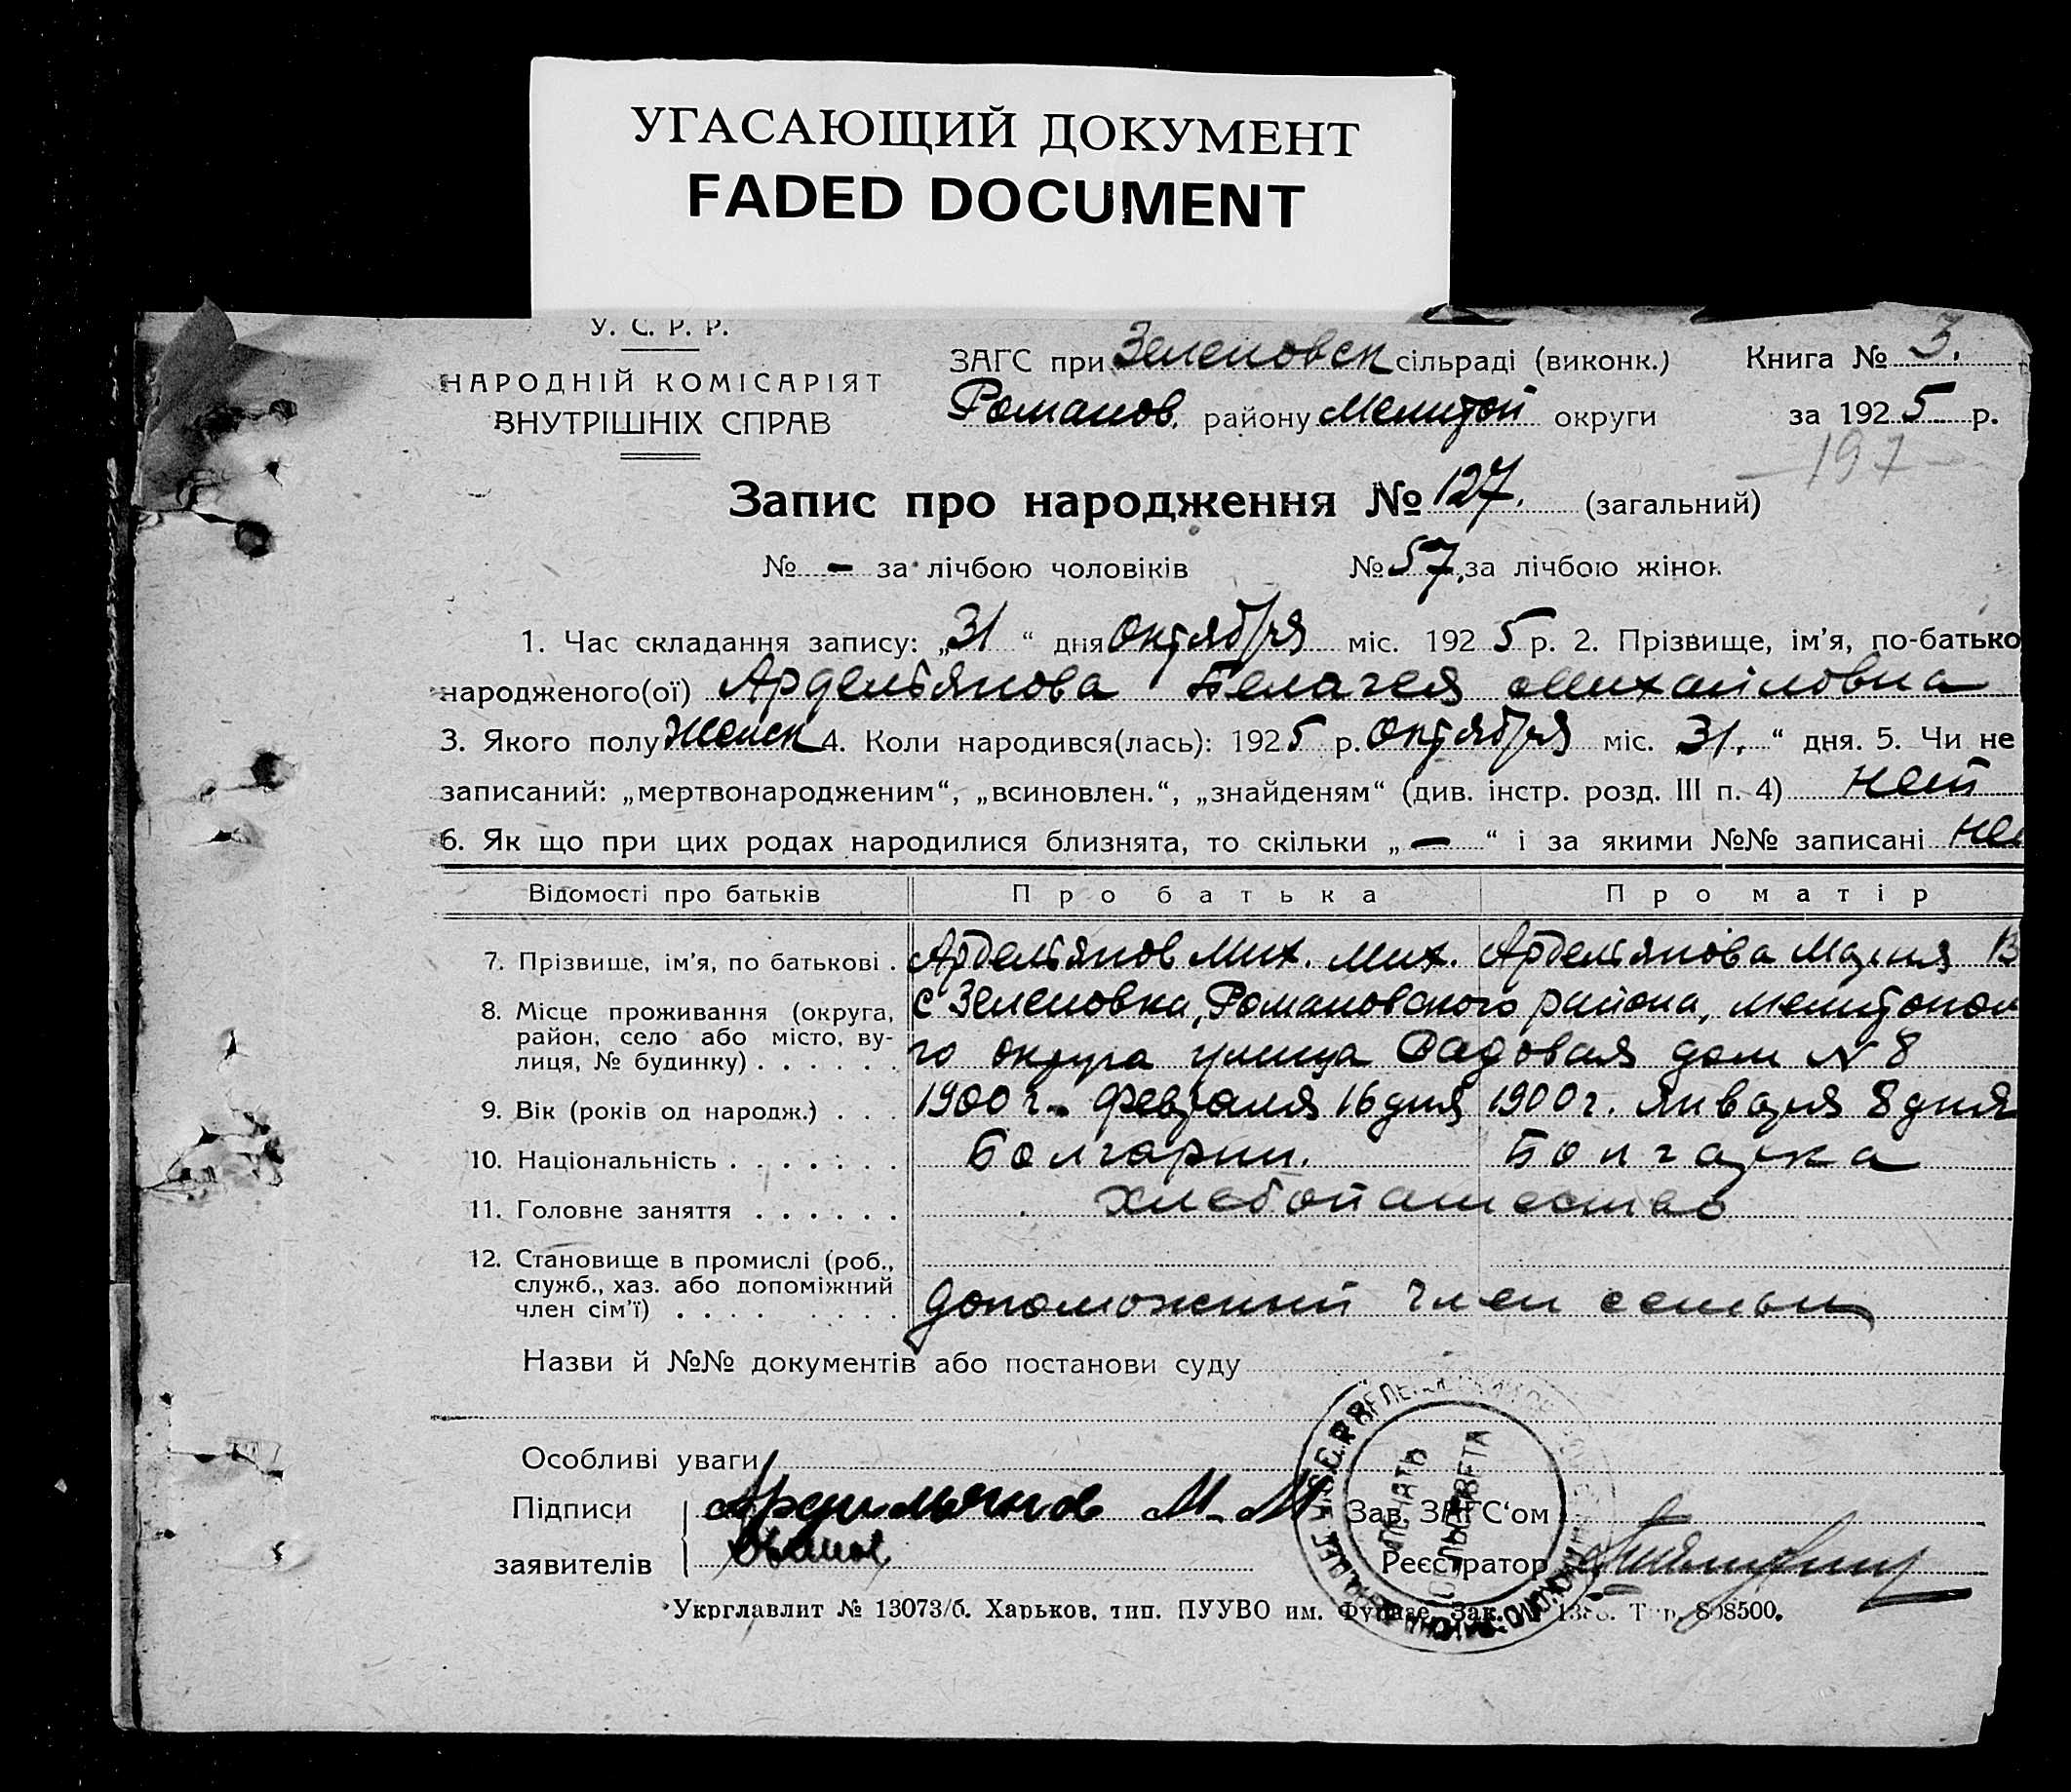 УГАСАЮЩИЙ ДОКУМЕНТ
FADED DOCUMENT
У. С. Р. Р.
НАРОДНІЙ КОМІСАРІЯТ
ВНУТРІШНІХ СПРАВ
ЗАГС при Зеленовск сільраді (виконк.) Книга № 3.
Романов. району Мелитоп округи за 1925 р.
197
Запис про народження № 127. (загальний)
№ - за лічбою чоловіків № 57. за лічбою жінок
1. Час складання запису: „31“ дня октября міс. 1925 р. 2. Прізвище, ім'я, по-батько
народженого(ої) Ардельянова Пелагея Михайловна
3. Якого полу Женск 4. Коли народився(лась): 1925 р. октября міс. 31. “ дня. 5. Чи не
записаний: „мертвонародженим“, „всиновлен.“, „знайденям“ (див. інстр. розд. III п. 4) нет
6. Як що при цих родах народилися близнята, то скільки „-“ і за якими №№ записані не
Відомості про батьків Про батька Про матір
7. Прізвище, ім'я, по батькові . Ардельянов Мих. Мих. Ардельянова Мария В
8. Місце проживання (округа, район, село або місто, вулиця, № будинку) . . . . . . с Зеленовка, Романовского района, Мелитопол
го округа улица Садовая дом № 8
9. Вік (років од народж.) . . . 1900 г. февраля 16 дня 1900 г. января 8 дня
10. Національність . . . . . . . Болгарин. Болгарка
11. Головне заняття . . . . . . хлебопашество
12. Становище в промислі (роб.,
служб., хаз. або допоміжний
член сім'ї) . . . . . . . . допоможний член семьи
Назви й №№ документів або постанови суду
Особливі уваги
Підписи Ардильянов М. М Зав. ЗАГС'ом
заявителів Реєстратор
ПЕЧАТЬ
СЕЛЬСОВЕТА
У.С.С.Р.
Укрглавлит № 13073/б. Харьков, тип. ПУУВО им. Фрунзе. Зак. Тир. 808500.